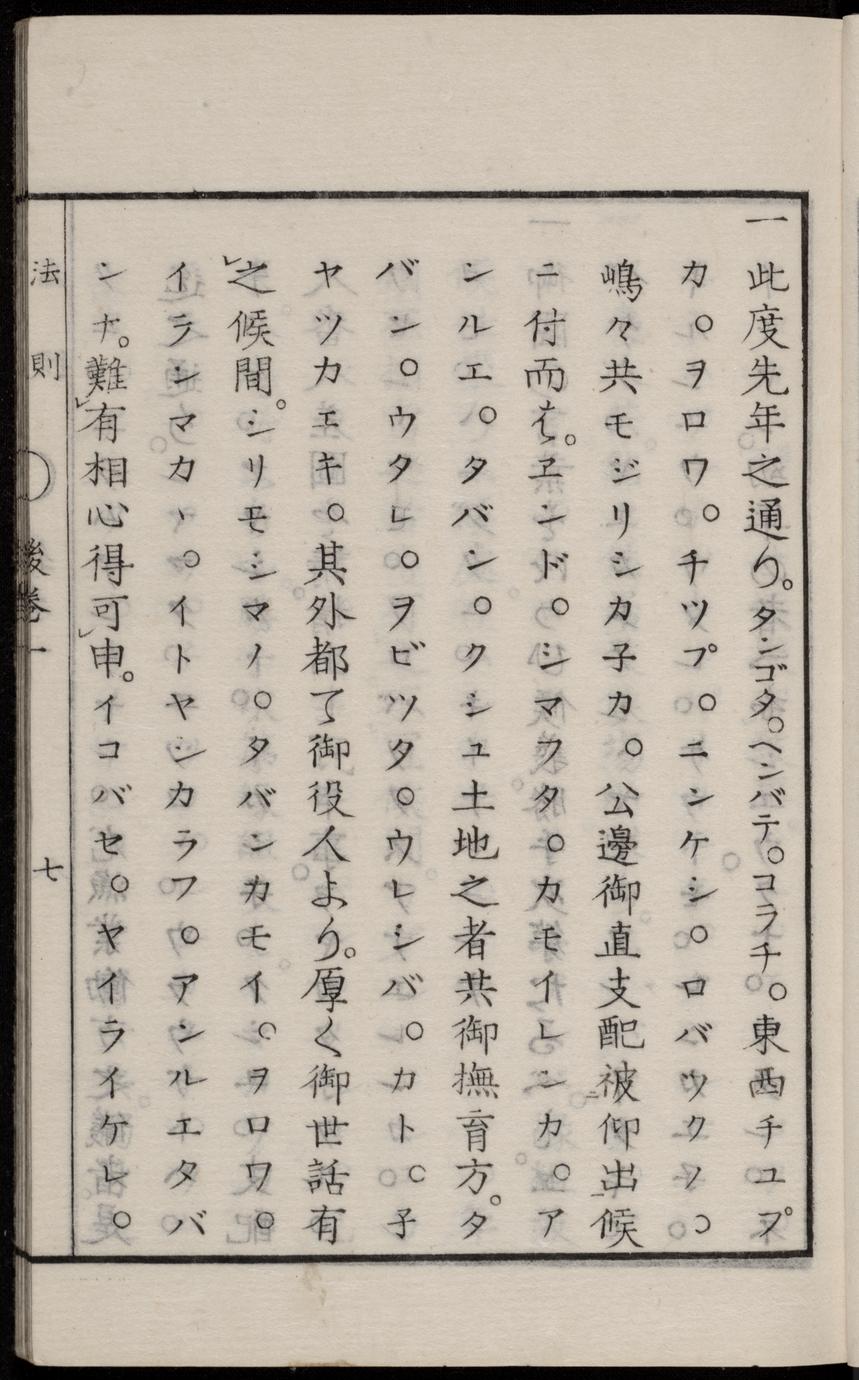 一此度先年之通り。タンゴタ。ヘンバテ。コラチ。東西チユプ゚
カ。ヲロワ。チツプ゚。ニンケシ。ロバツクノ。
嶋々共モジリシカ子カ。公邊御直支配被仰出候
ニ付而も。ヱンド。シマフタ。カモイレンカ。ア
ンルエ。タバン。クシュ土地之者共御撫育方。タ
バン。ウタレ。ヲビツタ。ウレシバ。カト。子
ヤツカエキ。其外都て御役人より。厚く御世話有
之候間。シリモシマノ。タバンカモイ。ヲロワ。
イラシマカヽ。イトヤシカラフ。アンルエタバ
ンナ。難有相心得可申。イコバセ。ヤイライケレ。
法則
後巻一
七